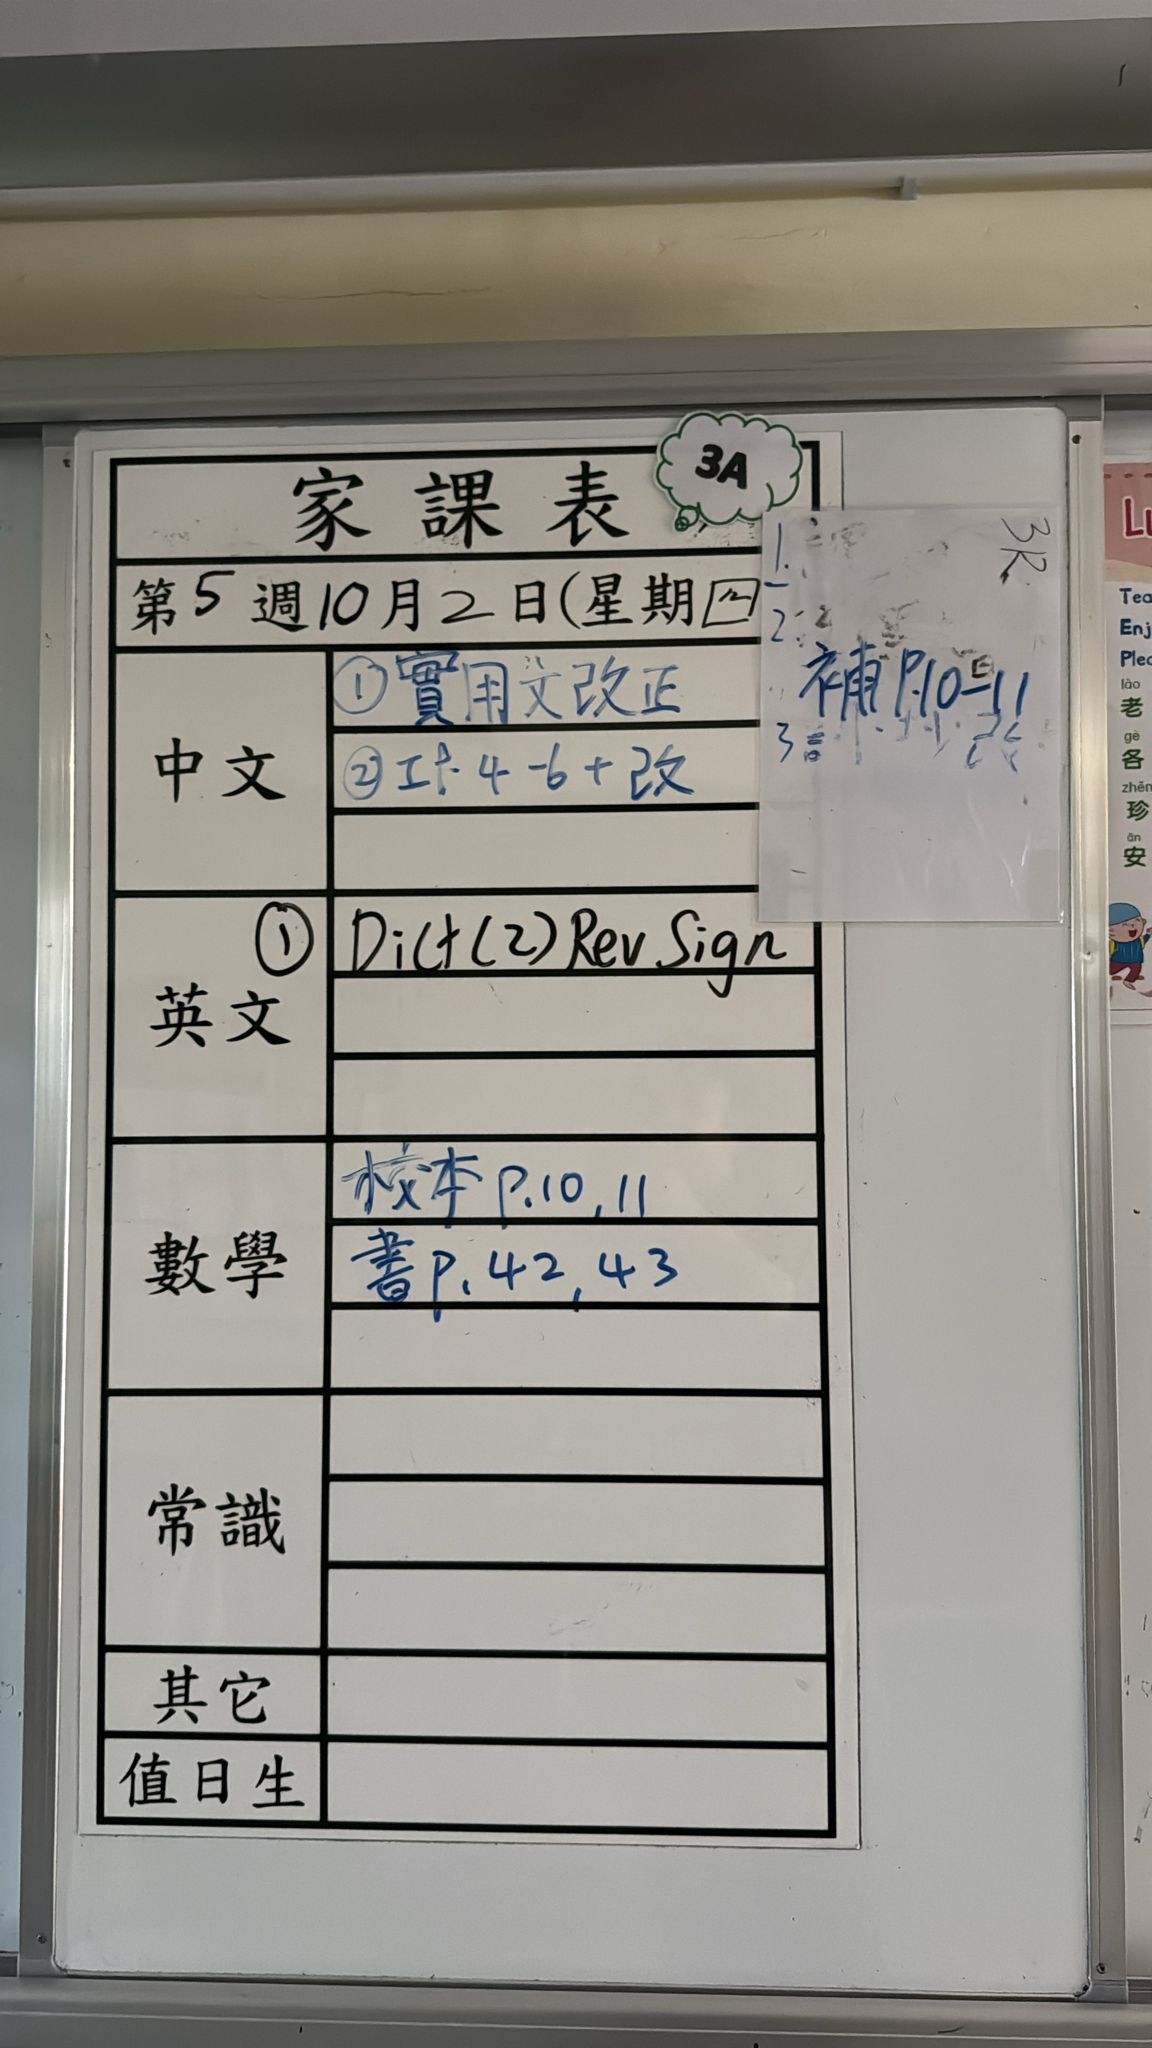 家課表
3A
第5週10月2日(星期四
中文
①實用文改正
②工作4-6+改
英文
① Dict(2) Rev Sign
數學
校本 p.10,11
書 p.42,43
常識
其它
值日生
3R
1.
2.
補 P.10-11
3
Tea
Enj
Plea
lǎo
老
gè
各
zhēn
珍
ān
安